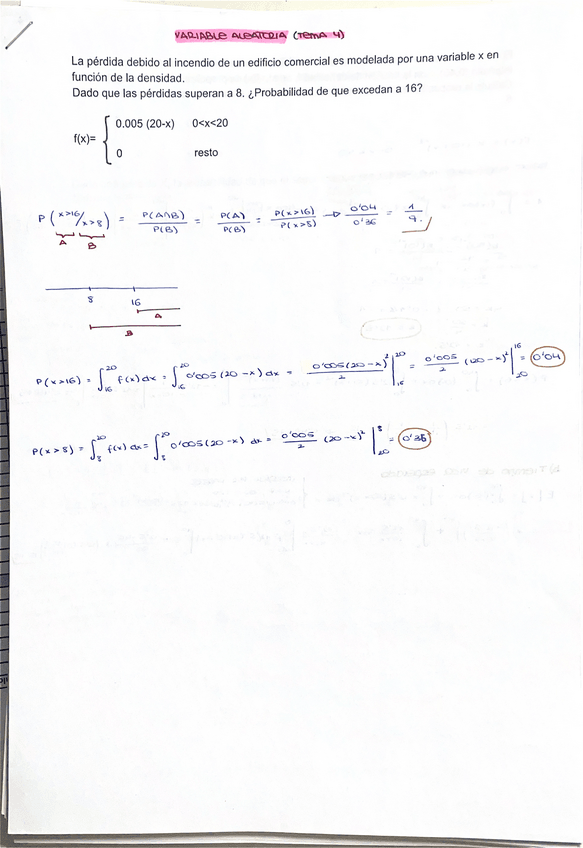 VARIABLE ALEATORIA (TEMA 4)
La pérdida debido al incendio de un edificio comercial es modelada por una variable x en
función de la densidad.
Dado que las pérdidas superan a 8. ¿Probabilidad de que excedan a 16?
f(x)= { 0.005 (20-x) 0<x<20
0 resto
P (x>16/x>8) = P(A∩B)/P(B) = P(A)/P(B) = P(x>16)/P(x>8) → 0'04/0'36 = 1/9.
A B
8 16
A
B
P(x>16) = ∫₁₆²⁰ f(x) dx = ∫₁₆²⁰ 0'005 (20-x) dx = 0'005(20-x)²/2 |₁₆²⁰ = 0'005/2 (20-x)² |₂₀¹⁶ = 0'04
P(x>8) = ∫₈²⁰ f(x) dx = ∫₈²⁰ 0'005 (20-x) dx = 0'005/2 (20-x)² |₂₀⁸ = 0'36